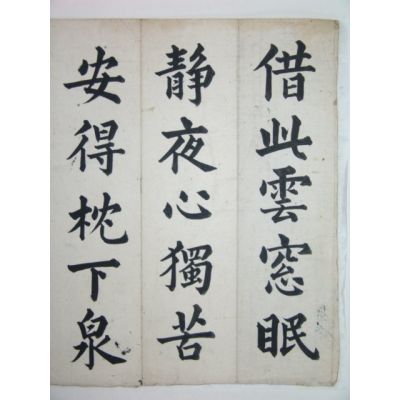 借此雲窓眠
靜夜心獨苦
安得枕下泉